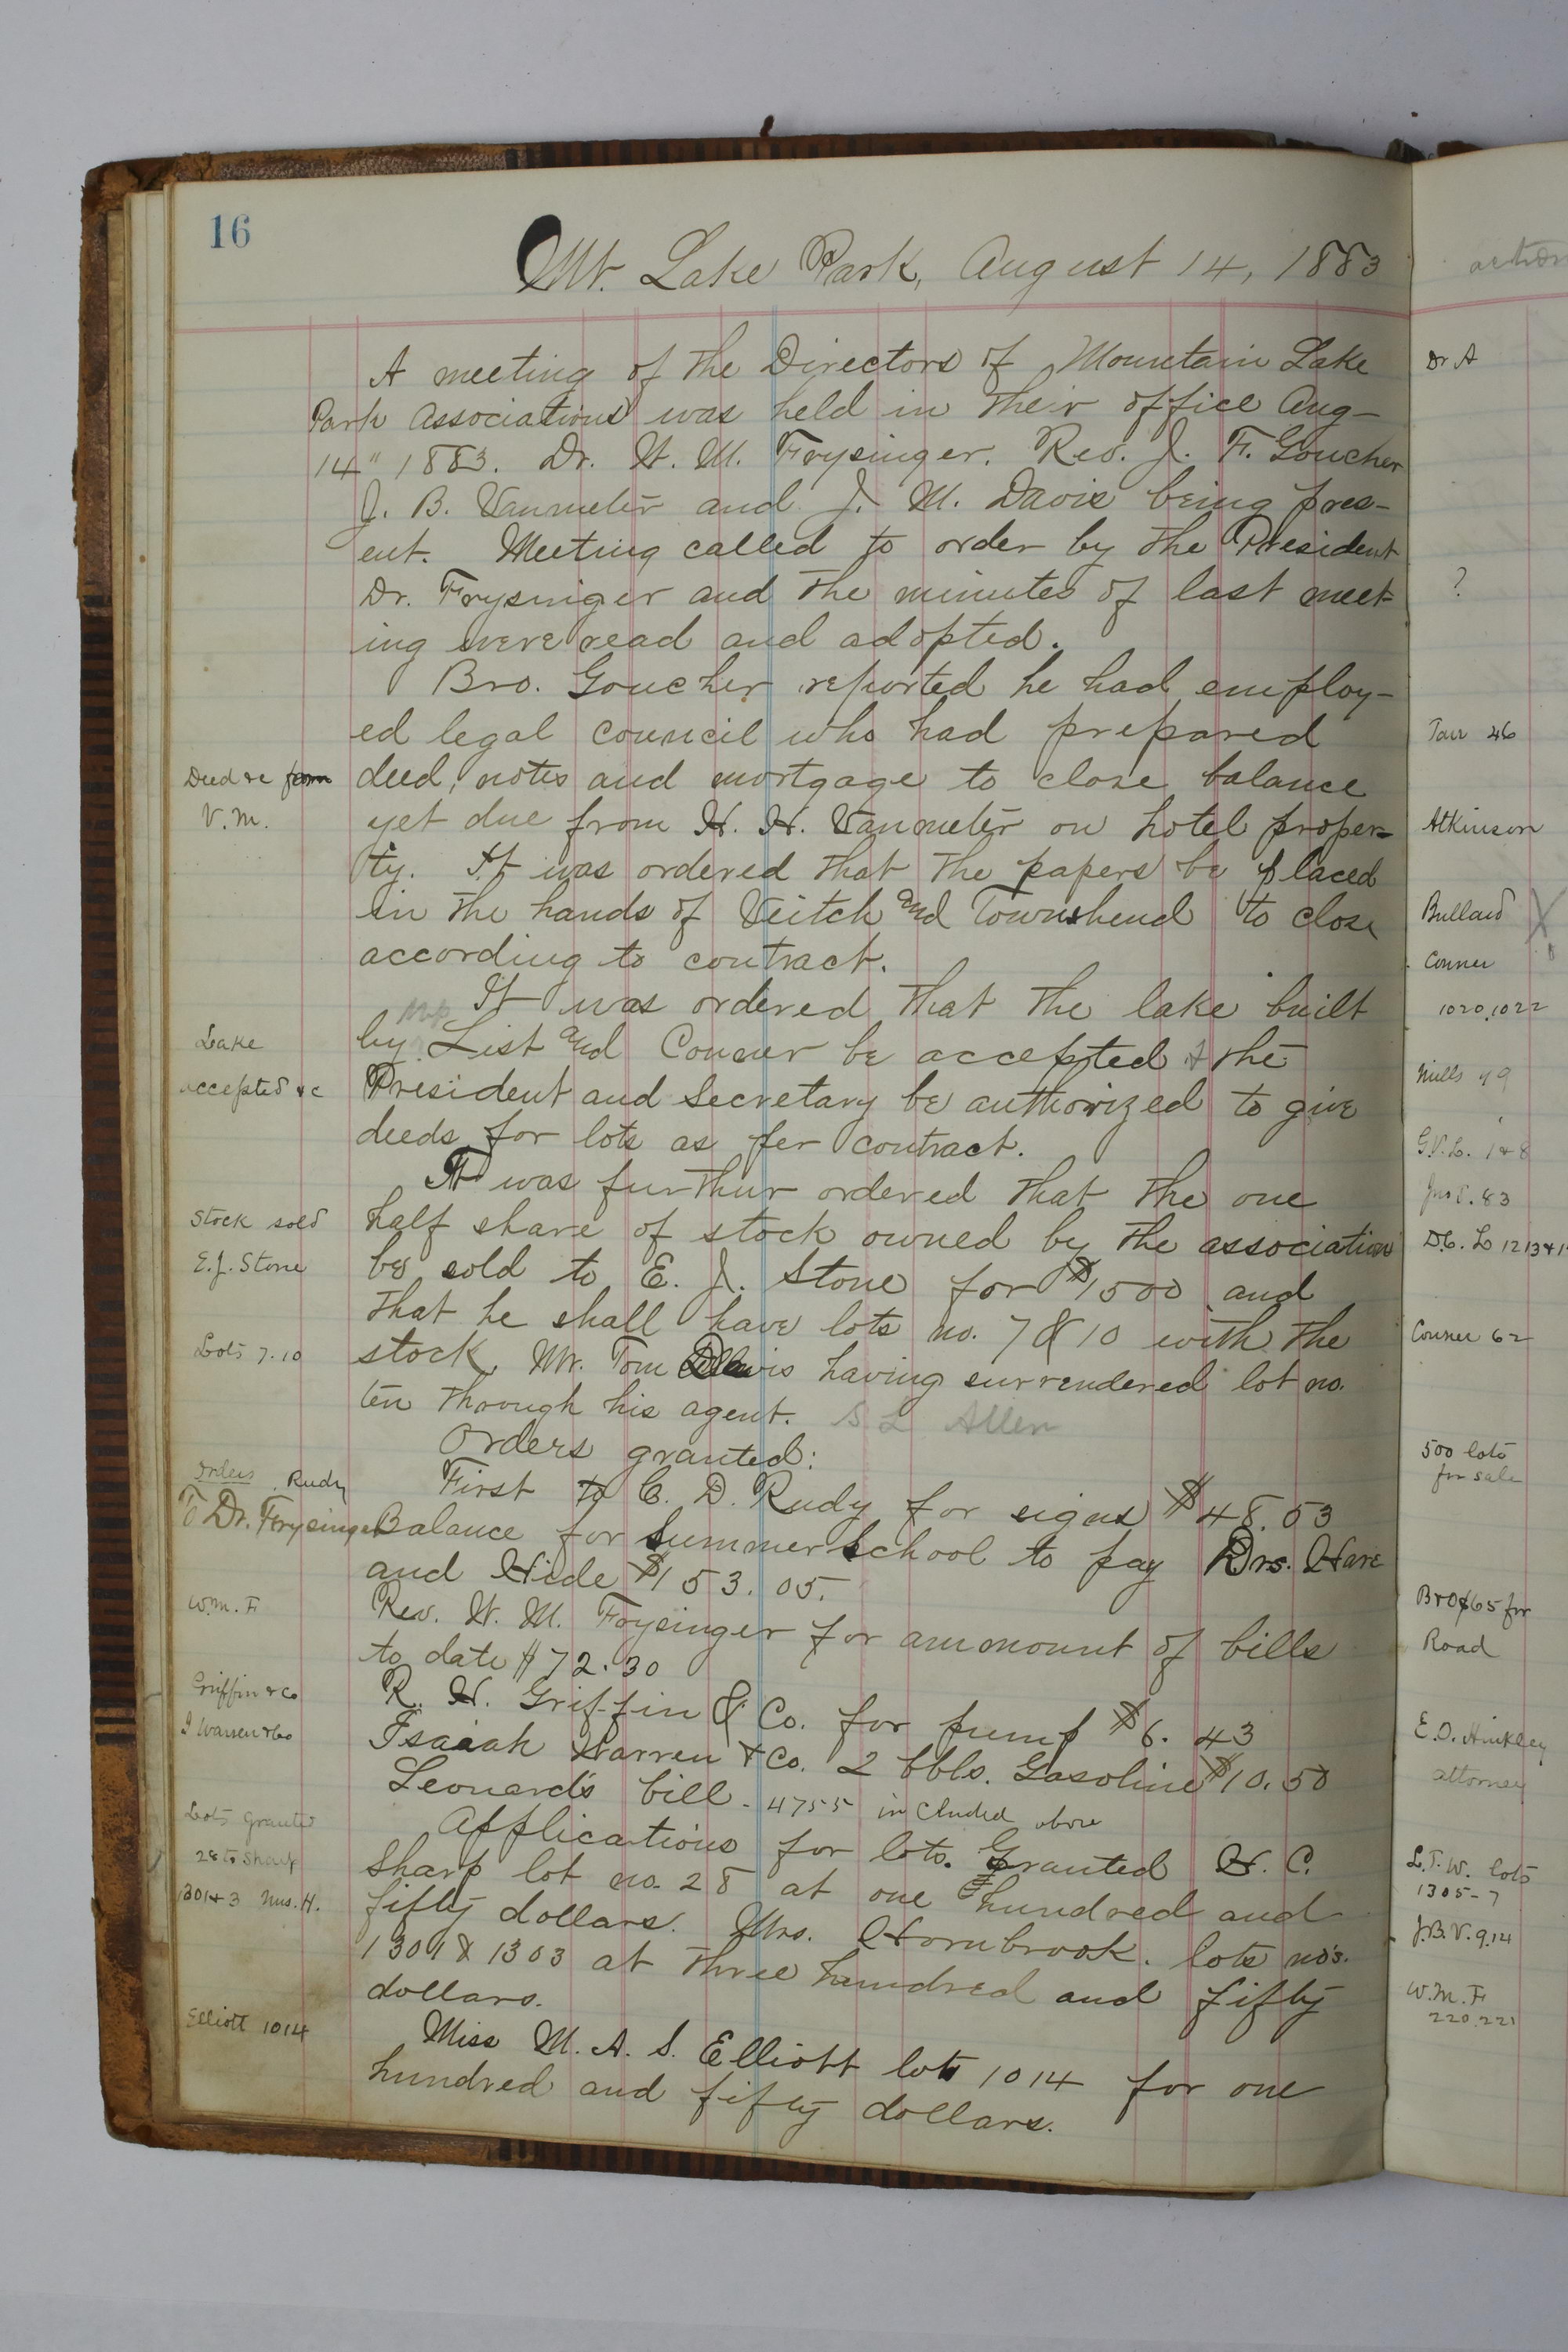 16
Mt. Lake Park, August 14, 1883
A meeting of the Directors of Mountain Lake
Park Associations was held in their office Aug-
14" 1883. Dr. W. M. Frysinger. Rev. J. F. Goucher
J. B. Vanmeter and J. M. Davis being pres-
ent. Meeting called to order by the President
Dr. Frysinger and the minutes of last meet-
ing were read and adopted.
Bro. Goucher reported he had employ-
ed legal council who had prepared
Deed &c from
deed, notes and mortgage to close balance
V.M.
yet due from H. H. Vanmeter on hotel proper-
ty. It was ordered that the papers be placed
in the hands of Veitch and Townshend to close
according to contract.
It was ordered that the lake built
Lake
by List and Conner be accepted & the
accepted &c
President and Secretary be authorized to give
deeds for lots as per contract.
It was furthur ordered that the one
Stock sold
half share of stock owned by the association
E.J. Stone
be sold to E. J. Stone for $1500 and
that he shall have lots no. 7 & 10 with the
Lots 7.10
stock, Mr. Tom Davis having surrendered lot no.
ten through his agent. S L Allen
Orders granted:
Orders Rudy
First to C. D. Rudy for signs $48.03
To Dr. Frysinger
Balance for Summer School to pay Drs. Hare
and Hide $153.05.
W.M. F
Rev. W. M. Frysinger for ammount of bills
to date $72.30
Griffin & Co
R. H. Griffin & Co. for pump $6.43
I Warren & Co
Isaiah Warren & Co. 2 bbls. Gasoline $10.50
Leonard's bill - 4755 included above
Lots granted
Applications for lots. Granted H. C.
28 to Sharp
Sharp lot no. 28 at one hundred and
1301 & 3 Mrs. H.
fifty dollars. Mrs. Hornbrook. lots no's.
1301 & 1303 at three hundred and fifty
dollars.
Elliott 1014
Miss M. A. S. Elliott lot 1014 for one
hundred and fifty dollars.
action
Dr A
?
Tarr 46
Atkinson
Bullard X
Conner
1020.1022
Mills 49
G.V.L. 1 & 8
D.C. L 1213 & 1
Conner 62
500 lots
for sale
B & O $65 for
Road
E.O. Hinkley
attorney
L.T.W. lots
1305-7
J.B.V. 9.14
W.M.F
220.221